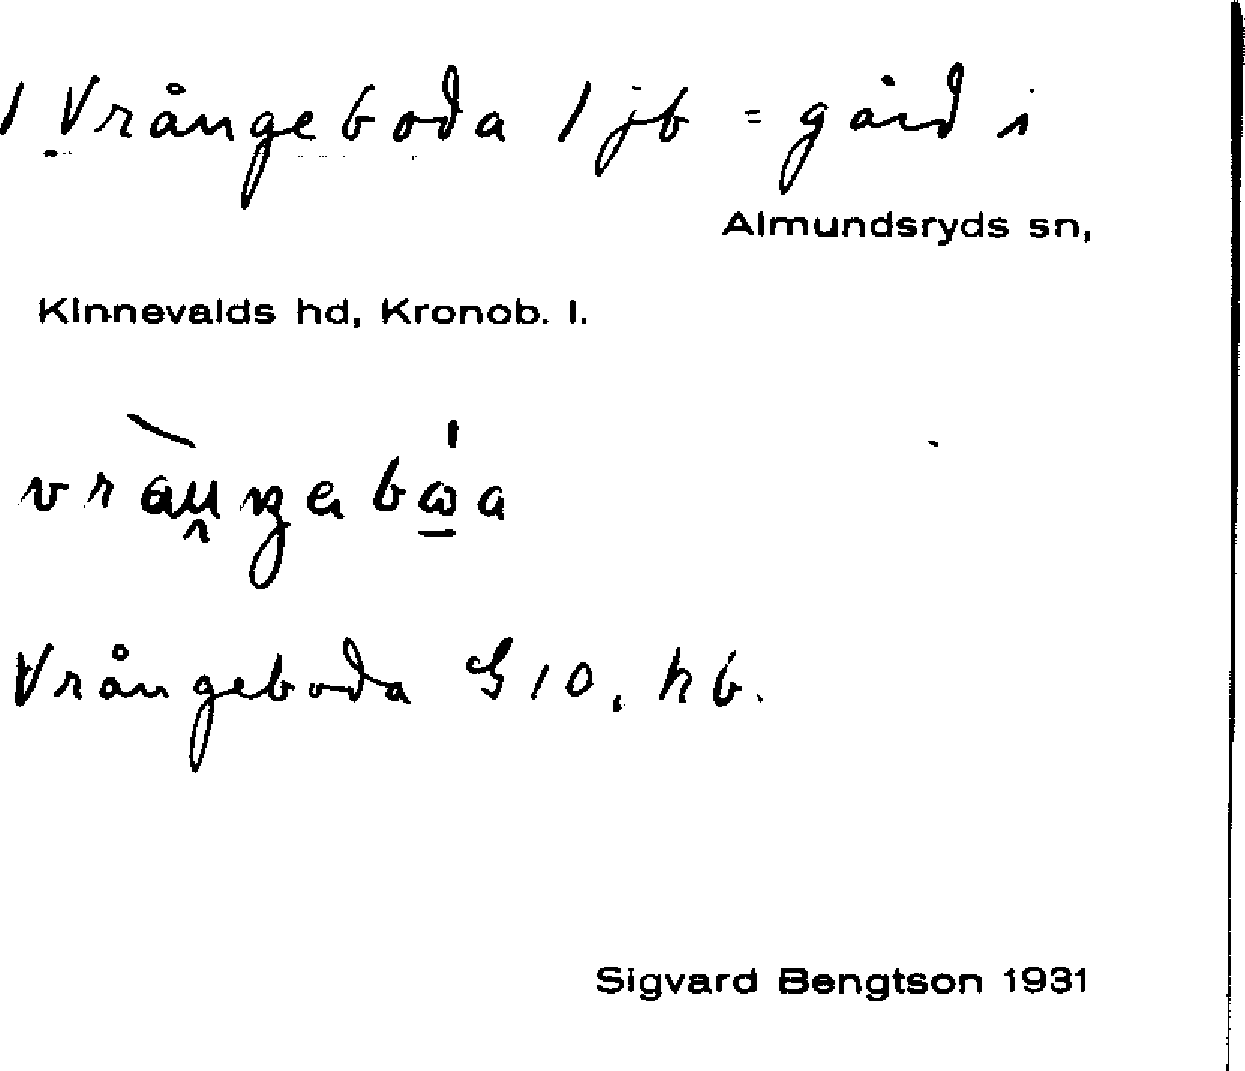 / Vrångeboda / jb = gård i
Almundsryds sn,
Kinnevalds hd, Kronob. l.
Vrångeboda G 10, hb.
Sigvard Bengtson 1931